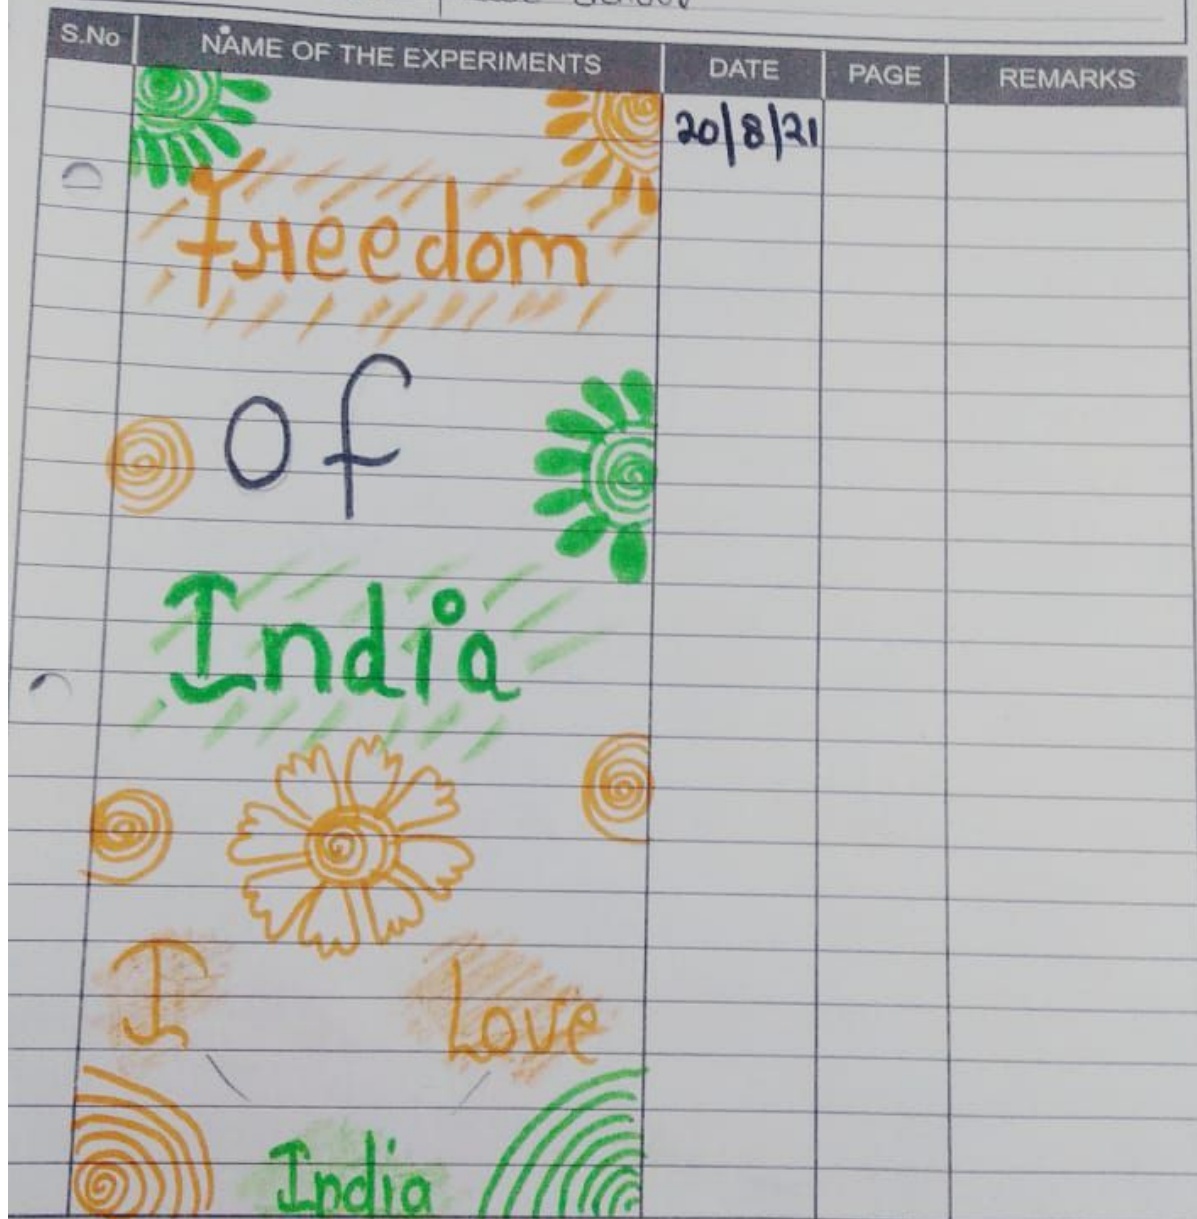 S.No NAME OF THE EXPERIMENTS DATE PAGE REMARKS
20/8/21
Freedom
Of
India
I Love
India